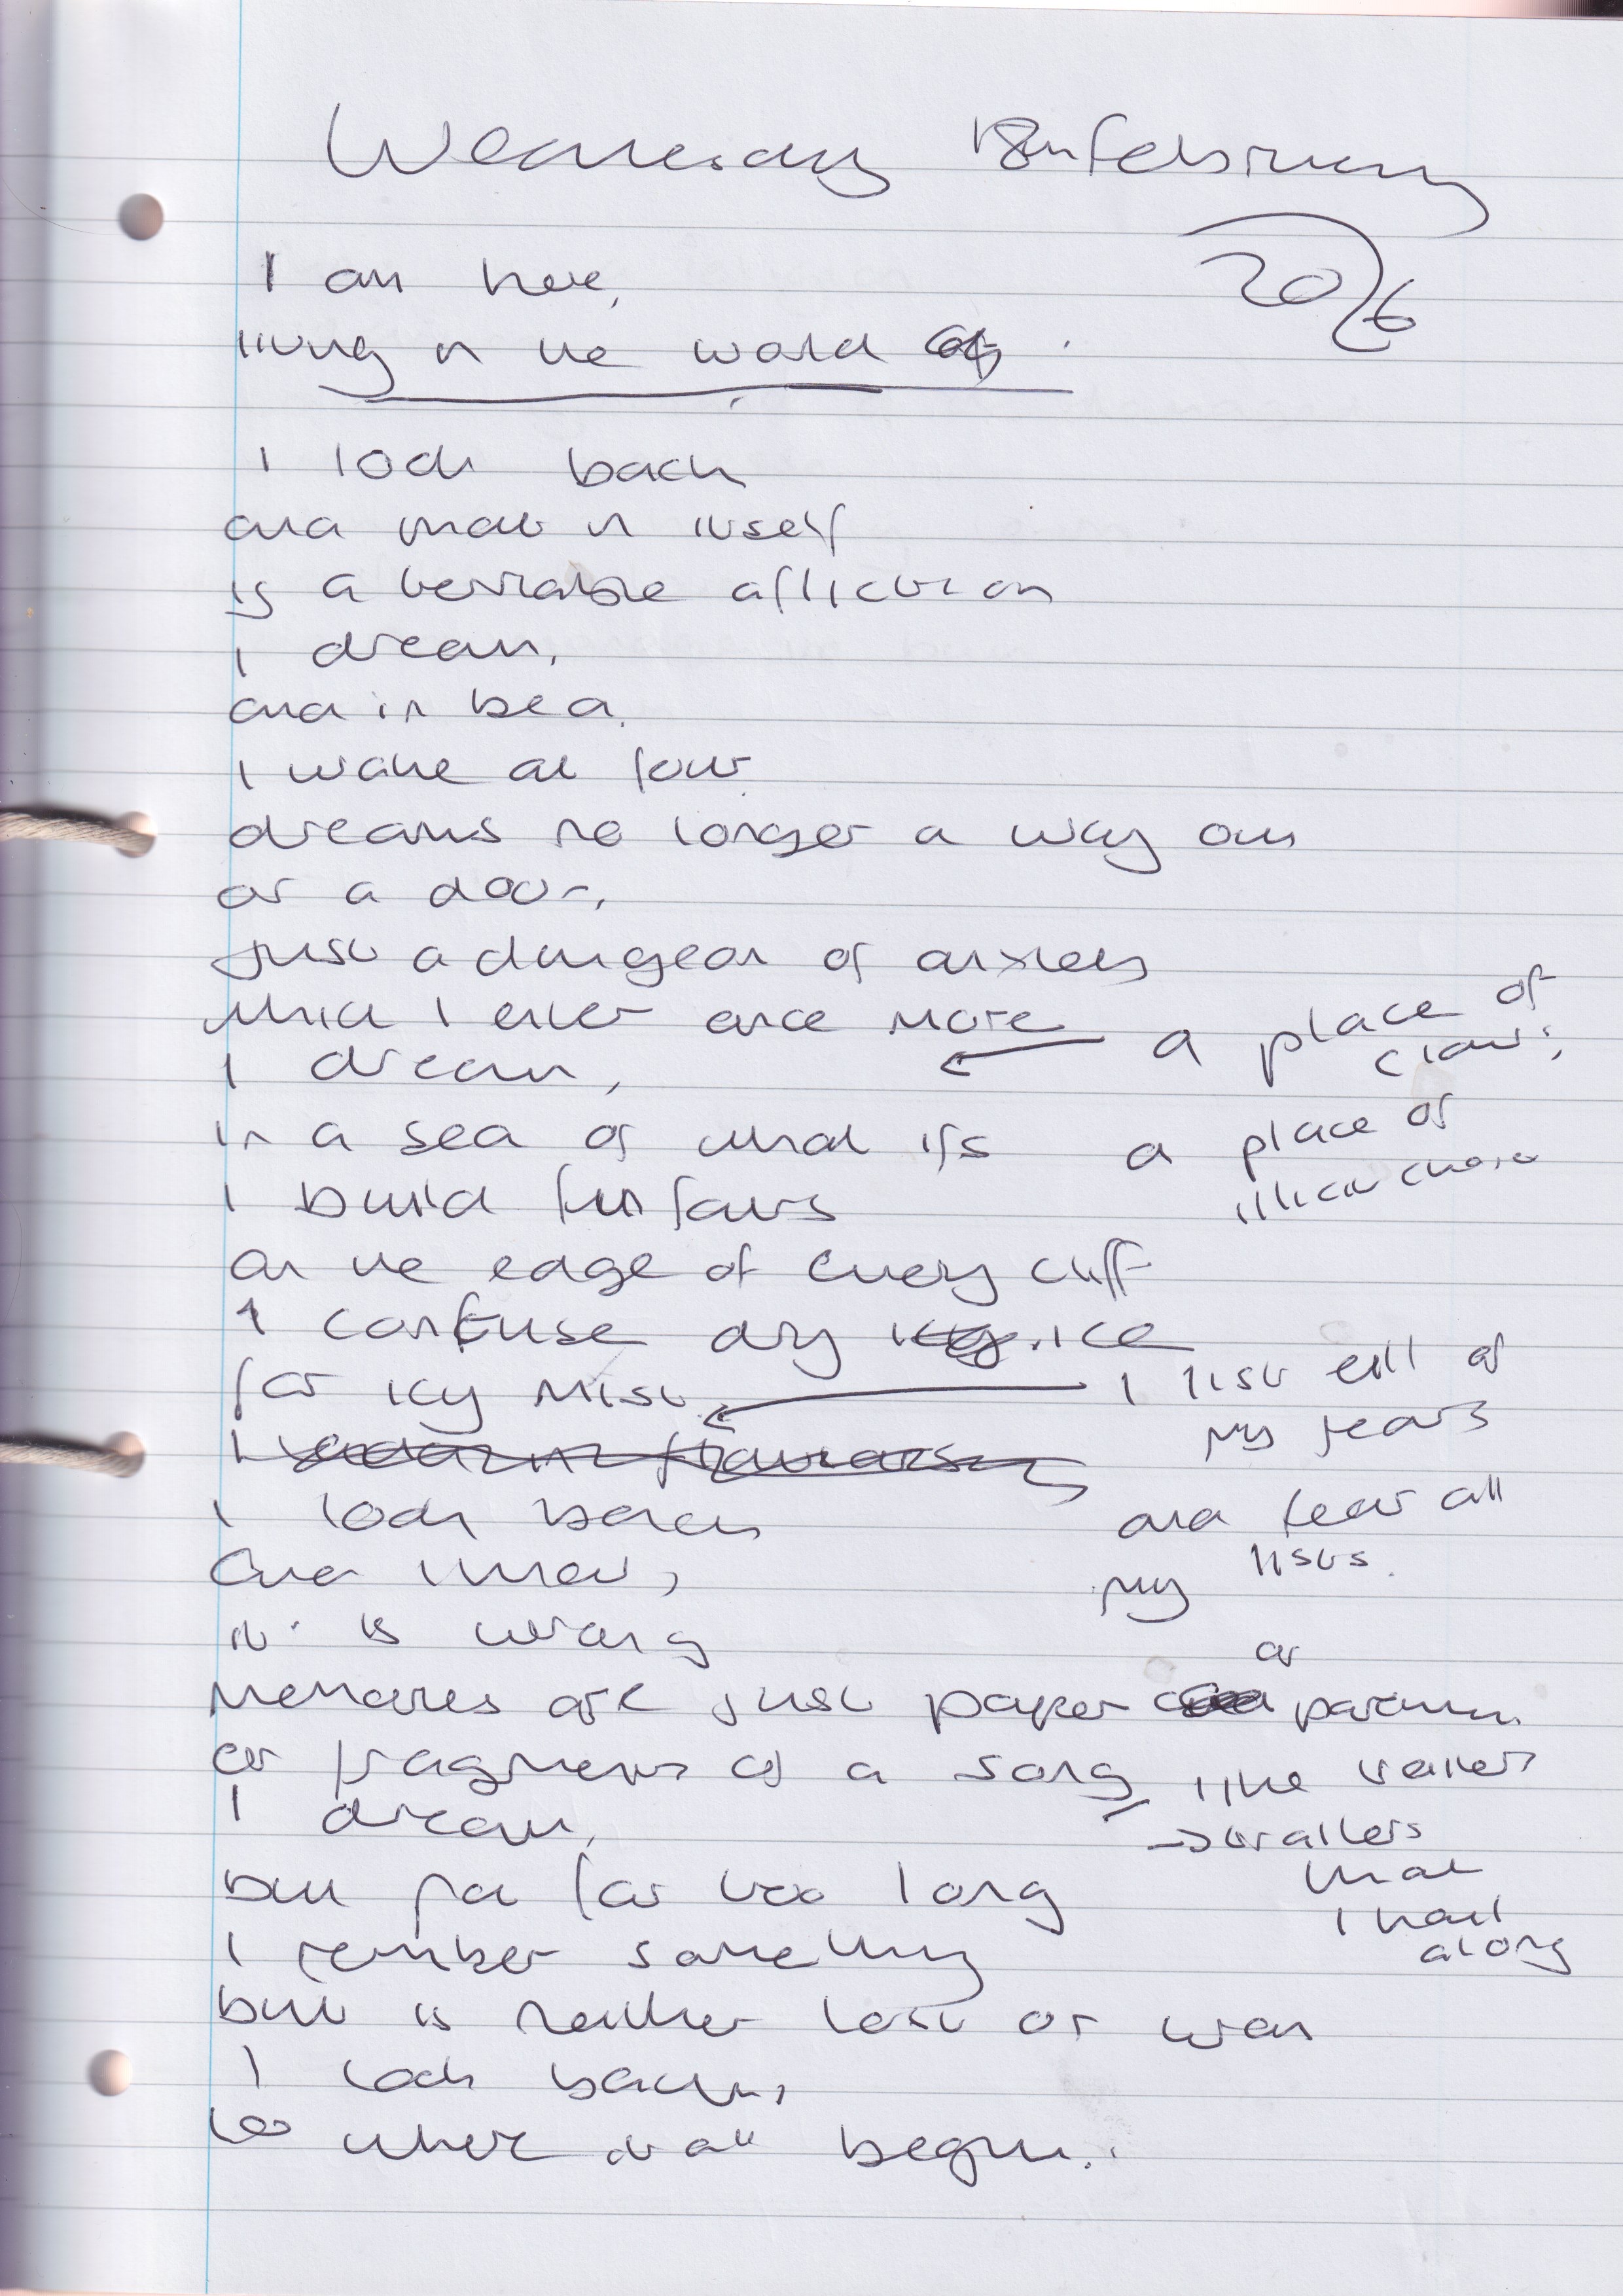 Wednesday 18th February
2026
I am here,
living in the world of
I look back
and that in itself
is a terrible affliction
I dream,
and in bed.
I wake at four
dreams no longer a way out
or a door,
Just a dungeon of anxiety
which I enter once more
a place of
claws;
I dream,
in a sea of what ifs
a place of
illicit
I build funfairs
on the edge of every cliff
I confuse dry ice
for icy mist
I list all of
my fears
and fear all
my lists.
I
I look back
and I know,
it is wrong
or
Memories are just paper
or fragments of a song, like trailers
→ trailers
that
I haul
along
I dream,
but for far too long
I remember something
but is neither lost or won
I look back,
to where it all begun.